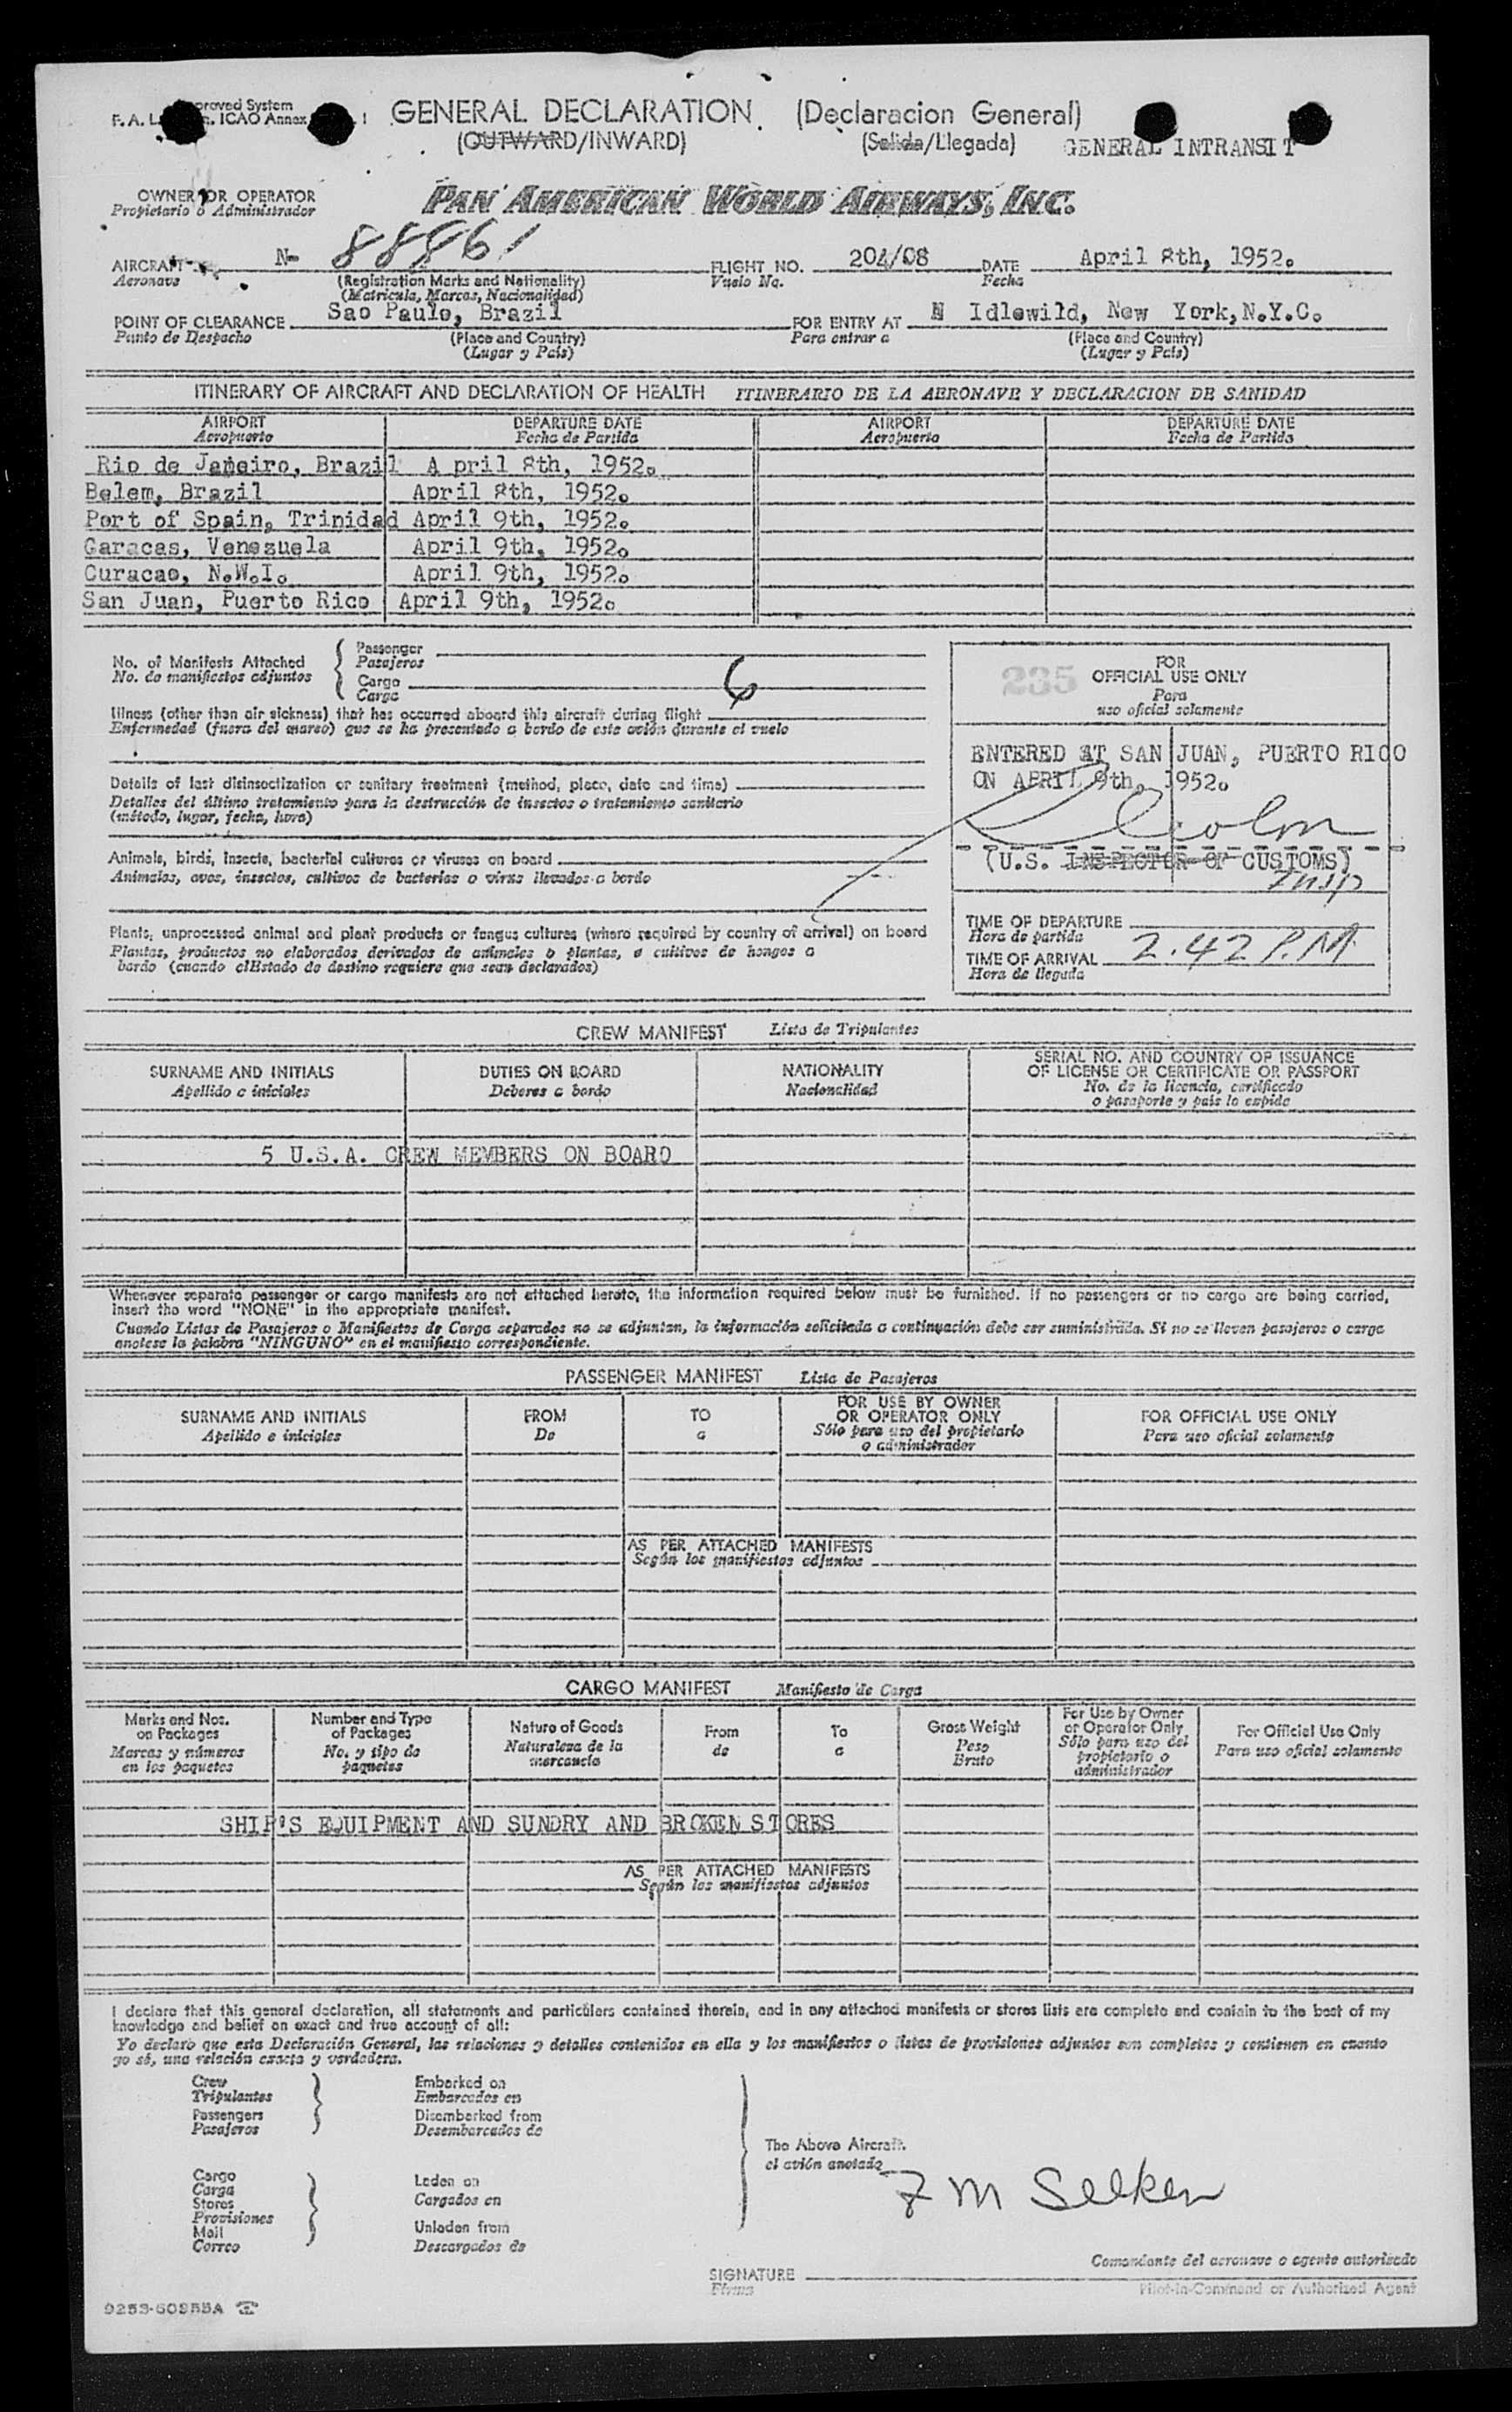 proved System
F. A. L. ICAO Annex 1
GENERAL DECLARATION. (Declaracion General)
(OUTWARD/INWARD) (Salida/Llegada)
GENERAL INTRANSIT
OWNER OR OPERATOR
Propietario o Administrador
PAN AMERICAN WORLD AIRWAYS, INC.
AIRCRAFT N- 88861 FLIGHT NO. 204/08 DATE April 8th, 1952.
Aeronave (Registration Marks and Nationality) Vuelo No. Fecha
(Matricula, Marcas, Nacionalidad)
POINT OF CLEARANCE Sao Paulo, Brazil FOR ENTRY AT N Idlewild, New York,N.Y.C.
Punto de Despacho (Place and Country) Para entrar a (Place and Country)
(Lugar y Pais) (Lugar y Pais)
ITINERARY OF AIRCRAFT AND DECLARATION OF HEALTH ITINERARIO DE LA AERONAVE Y DECLARACION DE SANIDAD
AIRPORT DEPARTURE DATE AIRPORT DEPARTURE DATE
Aeropuerto Fecha de Partida Aeropuerto Fecha de Partida
Rio de Janeiro, Brazil A pril 8th, 1952.
Belem, Brazil April 8th, 1952.
Port of Spain, Trinidad April 9th, 1952.
Caracas, Venezuela April 9th, 1952.
Curacao, N.W.I. April 9th, 1952.
San Juan, Puerto Rico April 9th, 1952.
No. of Manifests Attached
No. de manifiestos adjuntos
Passenger
Pasajeros
Cargo 6
Carga
Illness (other than air sickness) that has occurred aboard this aircraft during flight
Enfermedad (fuera del mareo) que se ha presentado a bordo de este avión durante el vuelo
Details of last disinsectization or sanitary treatment (method, place, date and time)
Detalles del último tratamiento para la destrucción de insectos o tratamiento sanitario
(método, lugar, fecha, hora)
Animals, birds, insects, bacterial cultures or viruses on board
Animales, aves, insectos, cultivos de bacterias o virus llevados a bordo
Plants, unprocessed animal and plant products or fungus cultures (where required by country of arrival) on board
Plantas, productos no elaborados derivados de animales o plantas, o cultivos de hongos a
bordo (cuando elEstado de destino requiere que sean declarados)
235
FOR
OFFICIAL USE ONLY
Para
uso oficial solamente
ENTERED AT SAN JUAN, PUERTO RICO
ON APRIL 9th, 1952.
(U.S. INSPECTOR OF CUSTOMS)
Insp
TIME OF DEPARTURE
Hora de partida
TIME OF ARRIVAL 2.42 P.M.
Hora de llegada
CREW MANIFEST Lista de Tripulantes
SURNAME AND INITIALS DUTIES ON BOARD NATIONALITY SERIAL NO. AND COUNTRY OF ISSUANCE
Apellido e iniciales Deberes a bordo Nacionalidad OF LICENSE OR CERTIFICATE OR PASSPORT
No. de la licencia, certificado
o pasaporte y pais lo expide
5 U.S.A. CREW MEMBERS ON BOARD
Whenever separate passenger or cargo manifests are not attached hereto, the information required below must be furnished. If no passengers or no cargo are being carried,
insert the word "NONE" in the appropriate manifest.
Cuando Listas de Pasajeros o Manifiestos de Carga separados no se adjuntan, la información solicitada a continuación debe ser suministrada. Si no se lleven pasajeros o carga
anotese la palabra "NINGUNO" en el manifiesto correspondiente.
PASSENGER MANIFEST Lista de Pasajeros
SURNAME AND INITIALS FROM TO FOR USE BY OWNER FOR OFFICIAL USE ONLY
Apellido e iniciales De a OR OPERATOR ONLY Para uso oficial solamente
Sólo para uso del propietario
o administrador
AS PER ATTACHED MANIFESTS
Según los manifiestos adjuntos
CARGO MANIFEST Manifiesto de Carga
Marks and Nos.
on Packages
Marcas y números
en los paquetes
Number and Type
of Packages
No. y tipo de
paquetes
Nature of Goods
Naturaleza de la
mercancia
From
de
To
a
Gross Weight
Peso
Bruto
For Use by Owner
or Operator Only
Sólo para uso del
propietario o
administrador
For Official Use Only
Para uso oficial solamente
SHIP'S EQUIPMENT AND SUNDRY AND BROKEN STORES
AS PER ATTACHED MANIFESTS
Según los manifiestos adjuntos
I declare that this general declaration, all statements and particulars contained therein, and in any attached manifests or stores lists are complete and contain to the best of my
knowledge and belief an exact and true account of all:
Yo declaro que esta Declaración General, las relaciones y detalles contenidos en ella y los manifiestos o listas de provisiones adjuntos son completos y contienen en cuanto
yo sé, una relación exacta y verdadera.
Crew Embarked on
Tripulantes Embarcados en
Passengers Disembarked from
Pasajeros Desembarcados de
The Above Aircraft.
el avión anotado
Cargo Laden on
Carga Cargados en
Stores
Provisiones
Mail Unladen from
Correo Descargados de
F M Selken
Comandante del aeronave o agente autorizado
SIGNATURE
Firma
Pilot-in-Command or Authorized Agent
9253-60955A